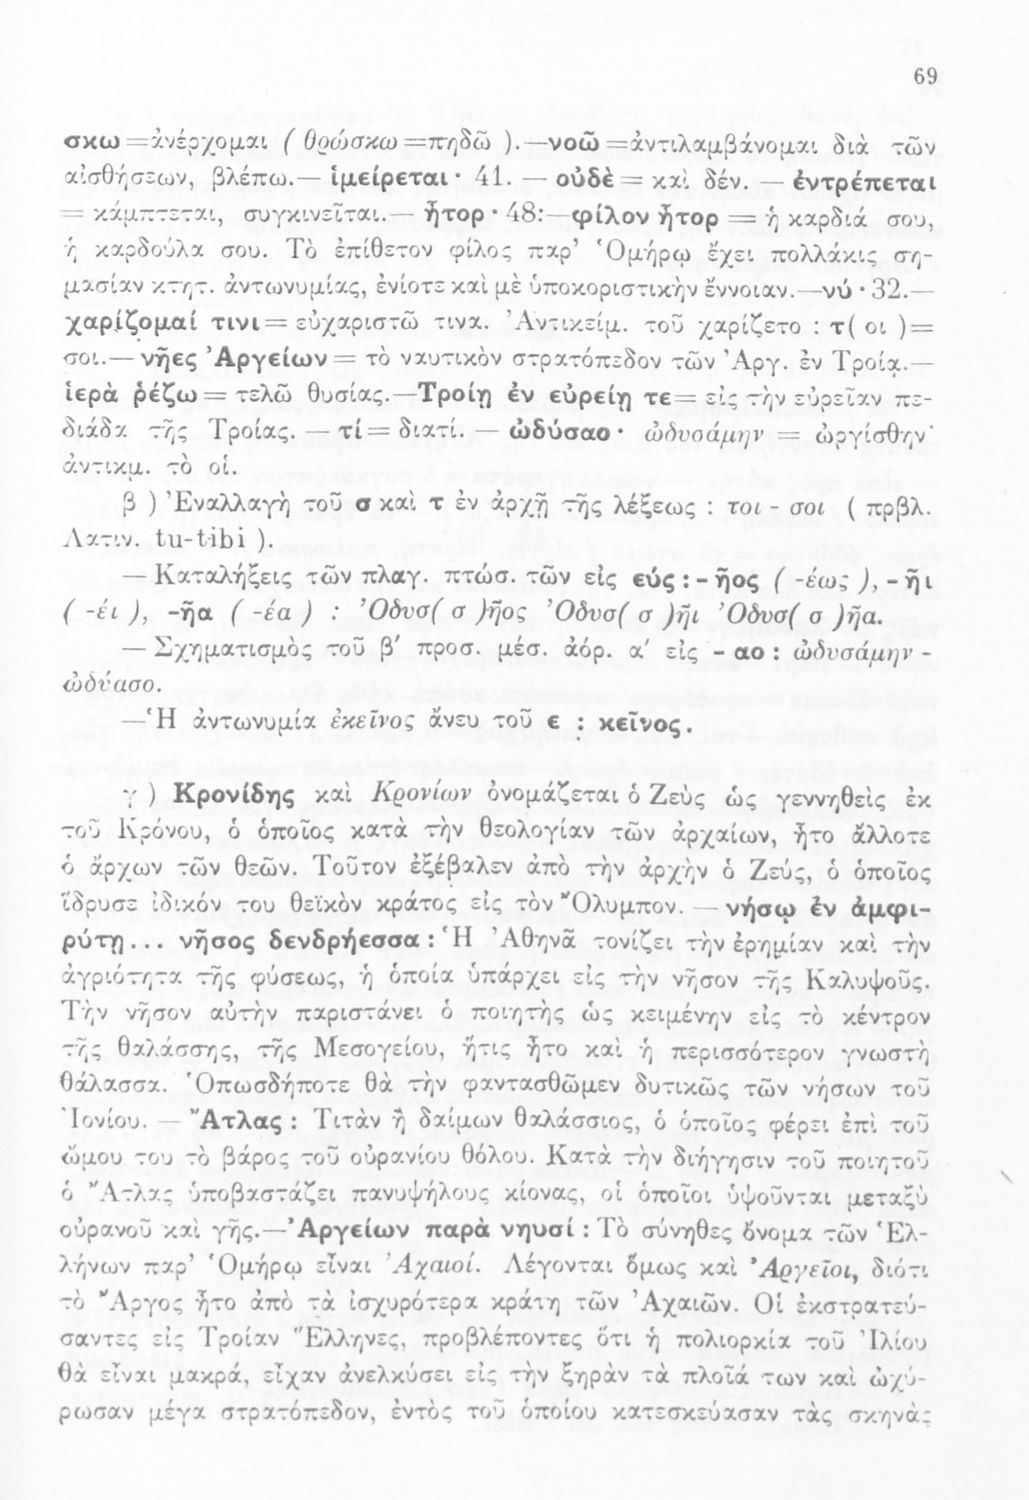 69
σκω=ἀνέρχομαι ( θρώσκω=πηδῶ ).—νοῶ=ἀντιλαμβάνομαι διὰ τῶν
αἰσθήσεων, βλέπω.— ἱμείρεται· 41. — οὐδὲ = καὶ δέν. — ἐντρέπεται
= κάμπτεται, συγκινεῖται.— ἦτορ · 48:—φίλον ἦτορ = ἡ καρδιά σου,
ἡ καρδούλα σου. Τὸ ἐπίθετον φίλος παρ’ Ὁμήρῳ ἔχει πολλάκις ση-
μασίαν κτητ. ἀντωνυμίας, ἐνίοτε καὶ μὲ ὑποκοριστικὴν ἔννοιαν.—νύ · 32.—
χαρίζομαί τινι= εὐχαριστῶ τινα. Ἀντικείμ. τοῦ χαρίζετο : τ( οι )=
σοι.— νῆες Ἀργείων = τὸ ναυτικὸν στρατόπεδον τῶν Ἀργ. ἐν Τροίᾳ.—
ἱερὰ ῥέζω = τελῶ θυσίας.—Τροίῃ ἐν εὐρείῃ τε= εἰς τὴν εὐρεῖαν πε-
διάδα τῆς Τροίας. — τί= διατί. — ὠδύσαο· ὠδυσάμην = ὠργίσθην·
ἀντικμ. τὸ οἱ.
β ) Ἐναλλαγὴ τοῦ σ καὶ τ ἐν ἀρχῇ τῆς λέξεως : τοι - σοι ( πρβλ.
Λατιν. tu-tibi ).
— Καταλήξεις τῶν πλαγ. πτώσ. τῶν εἰς εύς :-ῆος ( -έως ),-ῆι
( -έι ), -ῆα ( -έα ) : Ὀδυσ( σ )ῆος Ὀδυσ( σ )ῆι Ὀδυσ( σ )ῆα.
— Σχηματισμὸς τοῦ β′ προσ. μέσ. ἀόρ. α′ εἰς - αο : ὠδυσάμην -
ὠδύασο.
—Ἡ ἀντωνυμία ἐκεῖνος ἄνευ τοῦ ε : κεῖνος.
γ ) Κρονίδης καὶ Κρονίων ὀνομάζεται ὁ Ζεὺς ὡς γεννηθεὶς ἐκ
τοῦ Κρόνου, ὁ ὁποῖος κατὰ τὴν θεολογίαν τῶν ἀρχαίων, ἦτο ἄλλοτε
ὁ ἄρχων τῶν θεῶν. Τοῦτον ἐξέβαλεν ἀπὸ τὴν ἀρχὴν ὁ Ζεύς, ὁ ὁποῖος
ἵδρυσε ἰδικόν του θεϊκὸν κράτος εἰς τὸν Ὄλυμπον. — νήσῳ ἐν ἀμφι-
ρύτῃ... νῆσος δενδρήεσσα : Ἡ Ἀθηνᾶ τονίζει τὴν ἐρημίαν καὶ τὴν
ἀγριότητα τῆς φύσεως, ἡ ὁποία ὑπάρχει εἰς τὴν νῆσον τῆς Καλυψοῦς.
Τὴν νῆσον αὐτὴν παριστάνει ὁ ποιητὴς ὡς κειμένην εἰς τὸ κέντρον
τῆς θαλάσσης, τῆς Μεσογείου, ἥτις ἦτο καὶ ἡ περισσότερον γνωστὴ
θάλασσα. Ὁπωσδήποτε θὰ τὴν φαντασθῶμεν δυτικῶς τῶν νήσων τοῦ
Ἰονίου. — Ἄτλας : Τιτὰν ἢ δαίμων θαλάσσιος, ὁ ὁποῖος φέρει ἐπὶ τοῦ
ὤμου του τὸ βάρος τοῦ οὐρανίου θόλου. Κατὰ τὴν διήγησιν τοῦ ποιητοῦ
ὁ Ἄτλας ὑποβαστάζει πανυψήλους κίονας, οἱ ὁποῖοι ὑψοῦνται μεταξὺ
οὐρανοῦ καὶ γῆς.—Ἀργείων παρὰ νηυσί : Τὸ σύνηθες ὄνομα τῶν Ἑλ-
λήνων παρ’ Ὁμήρῳ εἶναι Ἀχαιοί. Λέγονται ὅμως καὶ Ἀργεῖοι, διότι
τὸ Ἄργος ἦτο ἀπὸ τὰ ἰσχυρότερα κράτη τῶν Ἀχαιῶν. Οἱ ἐκστρατεύ-
σαντες εἰς Τροίαν Ἕλληνες, προβλέποντες ὅτι ἡ πολιορκία τοῦ Ἰλίου
θὰ εἶναι μακρά, εἶχαν ἀνελκύσει εἰς τὴν ξηρὰν τὰ πλοῖά των καὶ ὠχύ-
ρωσαν μέγα στρατόπεδον, ἐντὸς τοῦ ὁποίου κατεσκεύασαν τὰς σκηνὰς